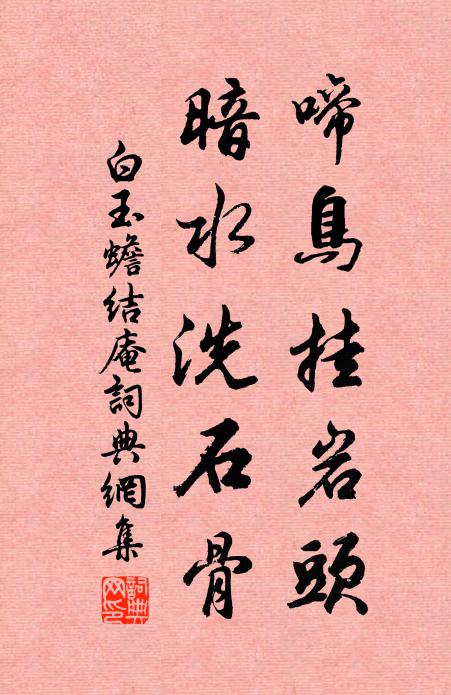 啼鳥挂岩頭
暗水洗石骨
白玉蟾结庵詞典網集
詞典網印